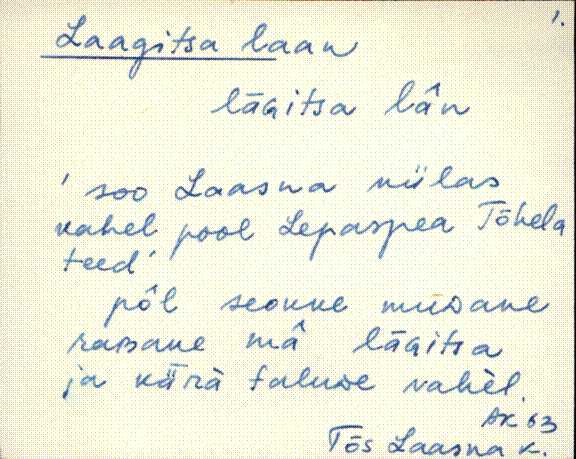 1.
Laagitsa laan
lāGitsa lân
' soo Laasna külas
kahel pool Lepaspea Tõhela
teed'
pôl seokne mudane
rabane mâ lāGitsa
ja kärä taluDe vahèl.
AK 63
Tõs Laasna k.